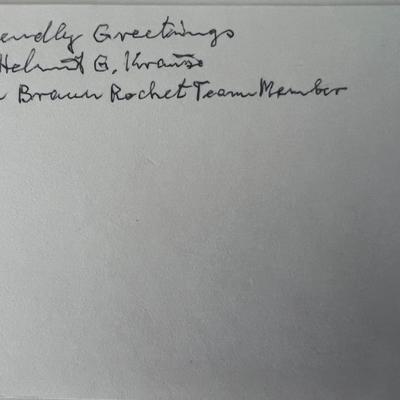 endly Greetings
Helmut G. Krauss
n Braun Rocket Team Member